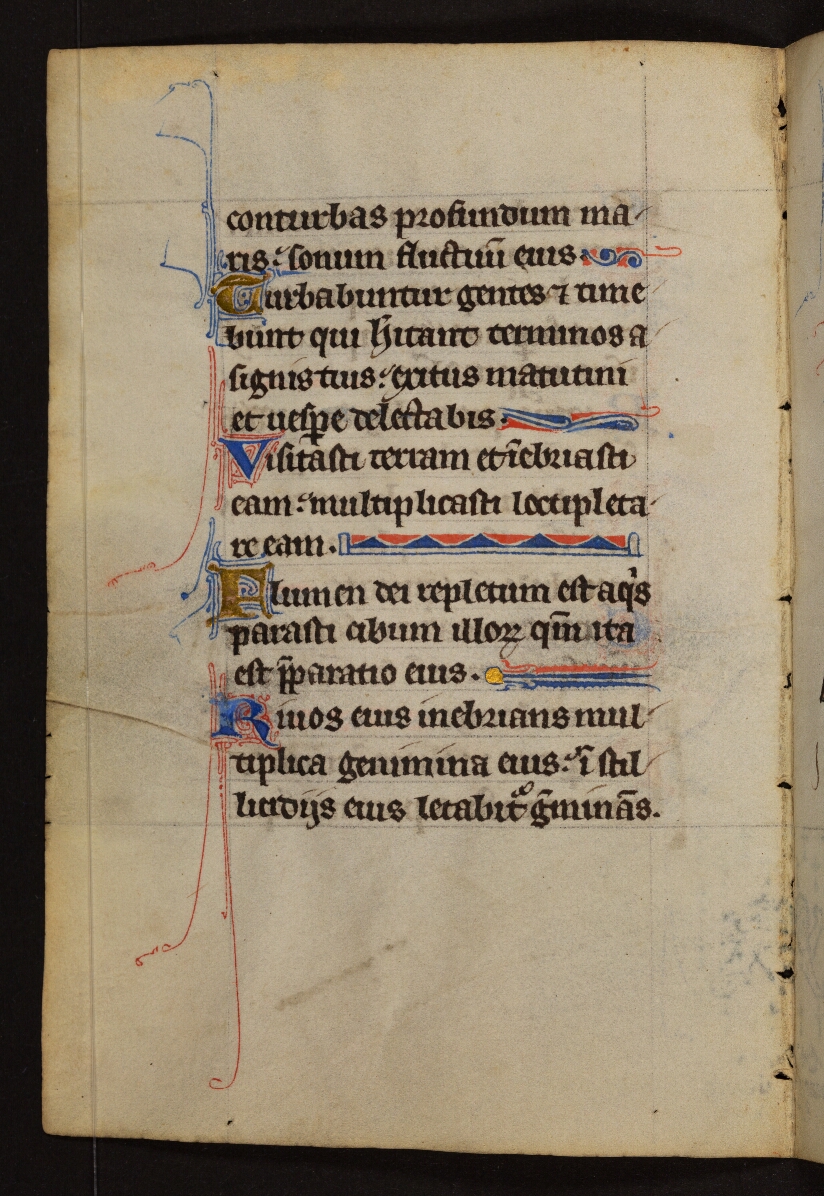 conturbas profundum ma-
ris: sonum fluctuū eius
Turbabuntur gentes ⁊ time
bunt qui h̄itant terminos a
signis tuis: exitus matutini
et uesꝑe delectabis.
Visitasti terram et īebriasti
eam: multiplicasti locupleta-
re eam.
Flumen dei repletum est aqͥs
parasti cibum illoꝝ qm̄ ita
est p̄paratio eius.
Riuos eius inebrians mul-
tiplica genimina eius: ī stil-
licidijs eius letabit᷑ ḡminās.